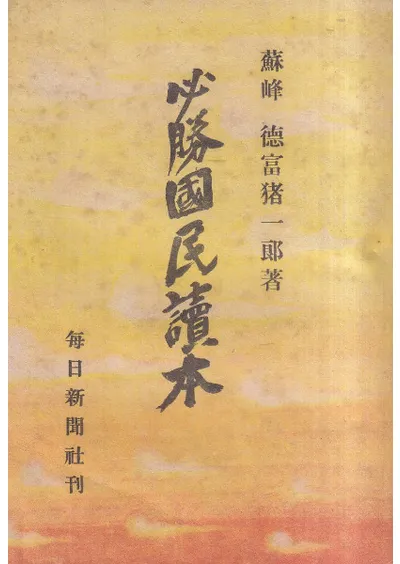 蘇峰 德富猪一郎著
必勝國民讀本
每日新聞社刊